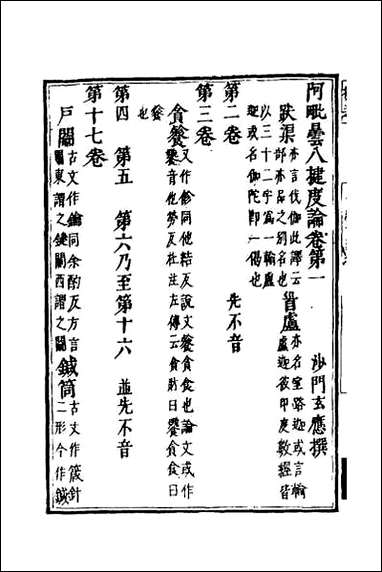 阿毗曇八揵度論卷第一　沙門玄應撰
跋渠 亦言伐伽此譯云部亦品之別名也 首盧 亦名室路迦或言輸盧迦彼印度數經皆以三十二字為一輸盧迦或名伽陀即一偈也
第二卷　先不音
第三卷
貪餮 又作飻同他結反說文餮貪食也論文或作饕音他勞反杜注左傳云貪財曰饕貪食曰餮也
第四　第五　第六乃至第十六　並先不音
第十七卷
戶闟 古文作鑰同余酌反方言關東謂之鍵關西謂之闟 鍼筒 古文作箴針二形今作鍼